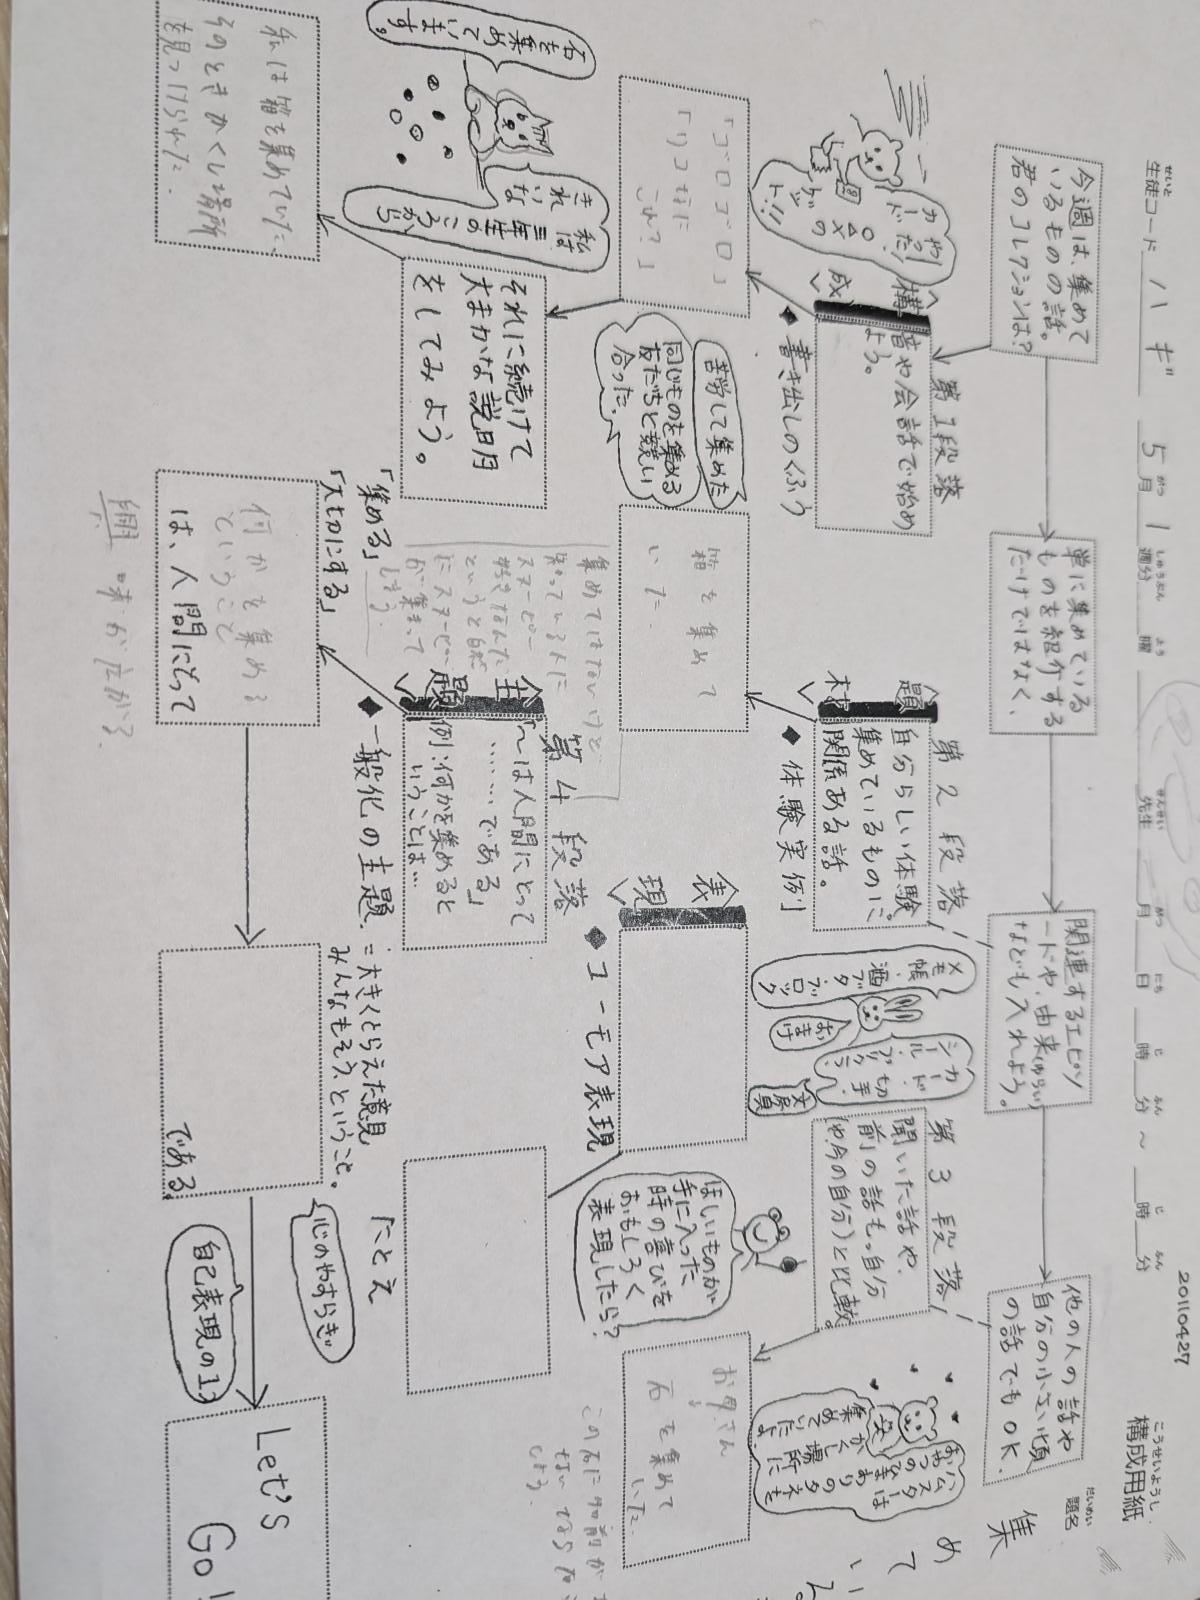 構成用紙
こうせいようし
20110427
生徒コード ハギ 5月1週分 曜 先生 月 日 時 分 ～ 時 分
せいと がつ しゅうぶん よう せんせい がつ にち じ ふん じ ふん
題名
だいめい
集
めて
い
今週は、集めて
いるものの話。
君のコレクションは?
単に集めている
ものを紹介する
だけではなく、
関連するエピソ
ードや、由来(ゆらい)
なども入れよう。
他の人の話や
自分の小さい頃
の話でもOK.
第1段落
〈構成〉
音や会話で始め
よう。
◆書き出しのくふう
やった!
カードだ!
○△×の
ゲット!!
「ゴロゴロゴロ」
「リコなに
これ?」
それに続けて
大まかな説明
をしてみよう。
石を集めています。
私は
三年生のころから
きれいな
私は箱を集めていた、
そのときかくし場所
を見つけられた.
第2段落
〈題材〉
自分らしい体験。
集めているものに
関係ある話。
◆体験実例
苦労して集めた
同じものを集める
友だちと競い
合った.
箱を集めて
いた.
集めてはないけど
知っている人に
スヌーピー
好きなんだ
というと自然
にスヌーピー
が集まって
しまう
メモ帳、
酒ブタ
ブロック
おまけ
シール、カード、
切手、
文房具
第3段落
聞いた話や、
前の話も。自分
(や今の自分)と比較。
ハムスターは
おやつのひまわりのタネを
かくし場所に
集めていたよ。
お母さん
石を集めて
いた.
この石に名前が
ないでしょう.
〈表現〉
◆ユーモア表現
ほしいものが
手に入った
時の喜びを
おもしろく
表現したら?
たとえ
第4段落
〈主題〉
「～は人間にとって
……である」
例:何かを集めると
いうことは…
◆一般化の主題.
=大きくとらえた意見
みんなもそう、ということ。
「集める」
「大切にする」
何かを集める
ということ
は、人間にとって
興味が広がる.
である.
心のやすらぎ
自己表現の1つ
Let's
Go!